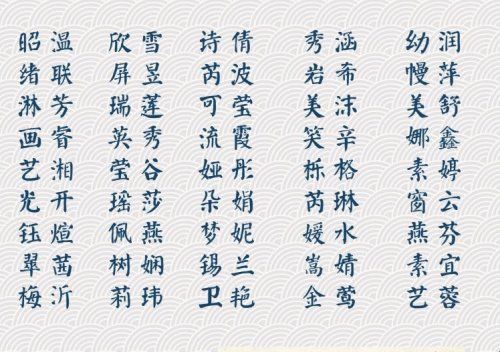 昭温 欣雪 诗倩 秀涵 幼润
绪联 屏昱 芮波 岩希 慢萍
淋芳 瑞莲 可莹 美沫 美舒
画睿 英秀 流霞 笑辛 娜鑫
艺湘 莹谷 娅彤 栎格 素婷
光开 瑶莎 朵娟 芮琳 窗云
钰煊 佩燕 梦妮 媛水 燕芬
翠茜 树娴 锡兰 嵩婧 素宜
梅沂 莉玮 卫艳 金莺 艺蓉